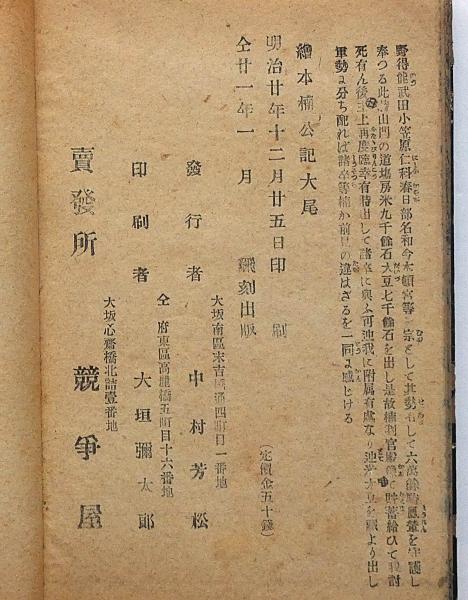 野得能武田小笠原仁科春日部名和今木頓宮等を宗として其勢都て六萬餘騎鳳輦を守護し
奉つる此時山門の道塲房米九千餘石大豆七千餘石を出し是故楠判官貯蓄給ひて我討
死有ん後主上再度臨幸有時出して諸卒に與ふ可汝我に附属有處なり迚米大豆を取より出し
軍勢に分ち配れば諸卒等楠が前見の違はざるを一同に感じける
繪本楠公記大尾
明治廿年十二月廿五日印刷
仝廿一年一月 飜刻出版
(定價金五十錢)
大坂南區末吉橋通四町目一番地
發行者 中村芳松
仝府東區高麗橋五町目十六番地
印刷者 大垣彌太郎
大坂心齋橋北詰壹番地
賣發所 競爭屋